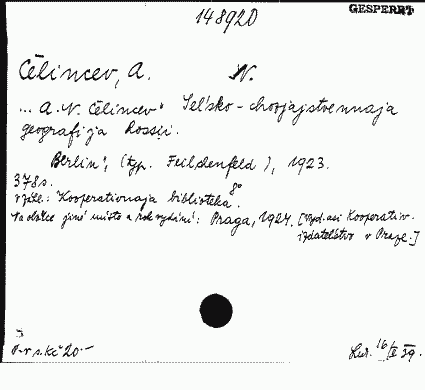 148920
GESPERRT
Čelincev, A. N.
... A. N. Čelincev: Sel'sko-chozjajstvennaja
geografija Rossii.
Berlin, (typ. Feildenfeld), 1923.
378 s. 8°
v záhl.: Kooperativnaja biblioteka.
Na obálce jiné místo a rok vydání: Praga, 1924. [Vyd. asi Kooperativ.
izdatel'stvo v Praze.]
Kč 20.-
16/II 29.